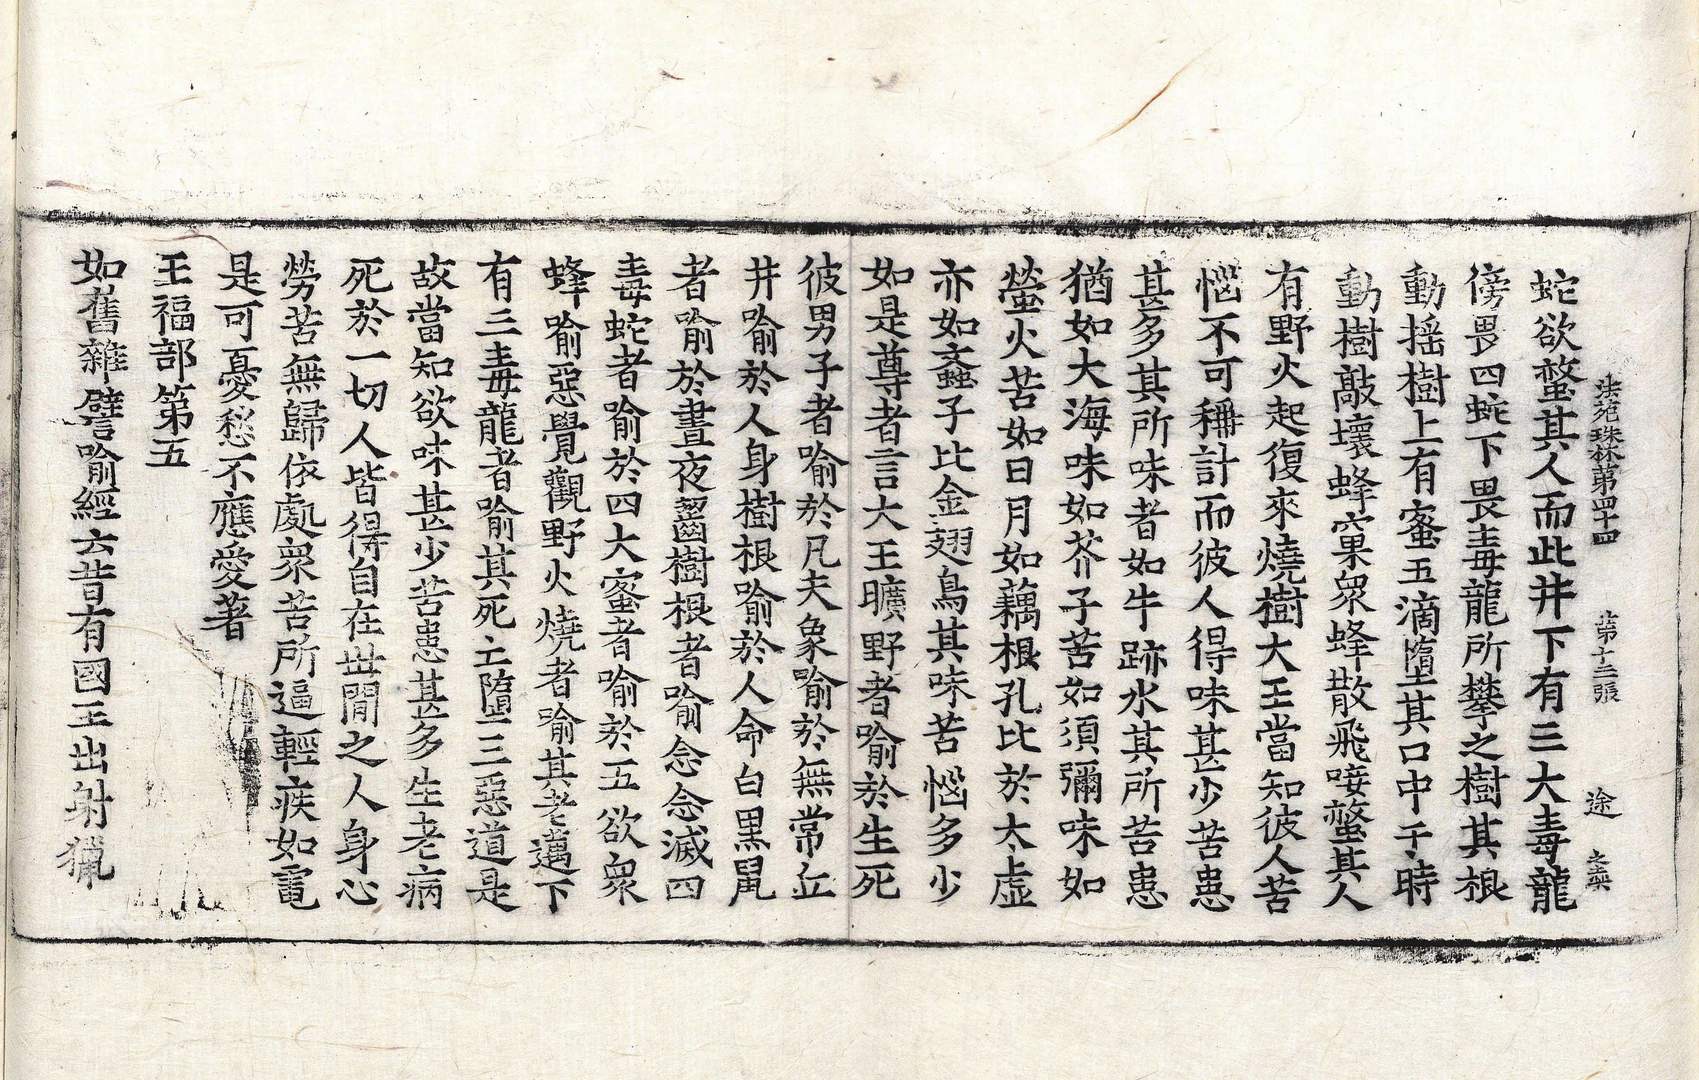 法苑珠林第四十四 第十三張 途
蛇欲螫其人而此井下有三大毒龍
傍畏四蛇下畏毒龍所攀之樹其根
動搖樹上有蜜五滴墮其口中于時
動樹敲壞蜂窠衆蜂散飛唼螫其人
有野火起復來燒樹大王當知彼人苦
惱不可稱計而彼人得味甚少苦患
甚多其所味者如牛跡水其所苦患
猶如大海味如芥子苦如須彌味如
螢火苦如日月如藕根孔比於太虛
亦如蚉子比金翅鳥其味苦惱多少
如是尊者言大王曠野者喻於生死
彼男子者喻於凡夫象喻於無常丘
井喻於人身樹根喻於人命白黑鼠
者喻於晝夜齧樹根者喻念念滅四
毒蛇者喻於四大蜜者喻於五欲衆
蜂喻惡覺觀野火燒者喻其老邁下
有三毒龍者喻其死亡墮三惡道是
故當知欲味甚少苦患甚多生老病
死於一切人皆得自在世間之人身心
勞苦無歸依處衆苦所逼輕疾如電
是可憂愁不應愛著
王福部第五
如舊雜譬喻經云昔有國王出射獵